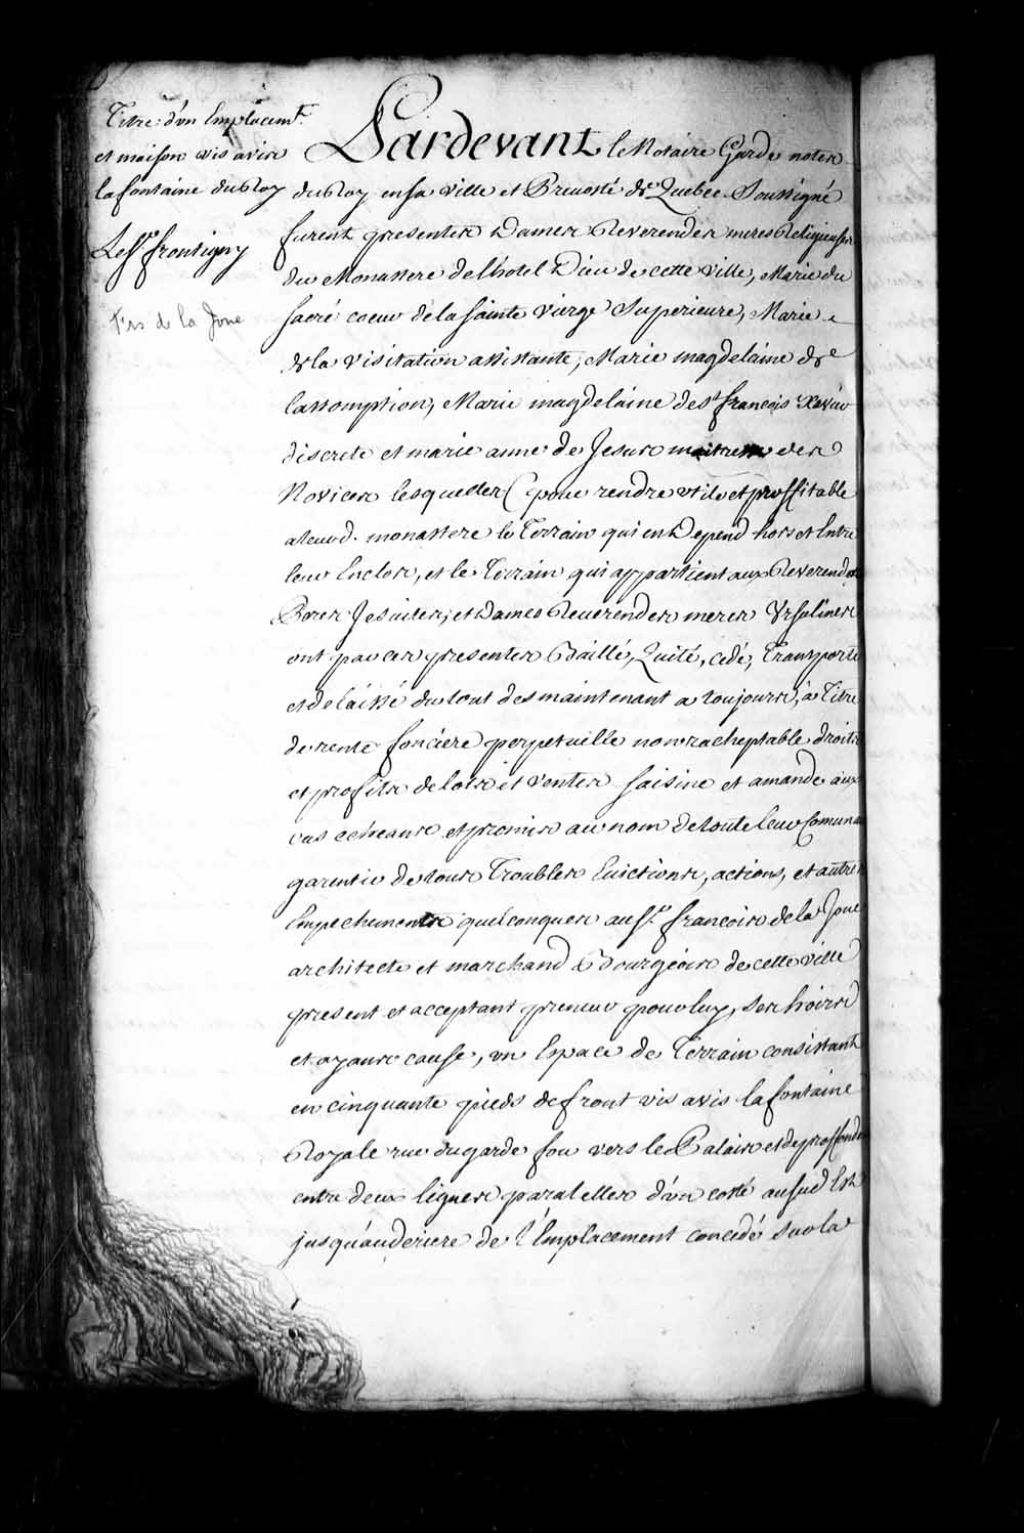 Titre d'un Emplacemt.
et maison vis avis
la fontaine du Roy
Le Sr. frontigny
frs de la Joue
Pardevant le Notaire Garde nottes
du Roy en sa ville et Prevosté de Quebec Soussigné
furent presentes Dames Reverendes meres Religieuses
du Monastere de l'hotel Dieu de cette ville, Marie du
sacré coeur de la sainte vierge Superieure, Marie
de la visitation assistante, Marie magdelaine de
lassomption, Marie magdelaine de st. francois Xavier
discrete et marie anne de Jesus maitresse des
Novices lesquelles (pour rendre utile et proffitable
a leurd. monastere le Terrain qui en Depend hors et Entre
leur Enclos, et le Terrain qui appartient aux Reverends
Peres Jesuites, et Dames Reverendes meres Ursulines
ont par ces presentes Baillé, Quité, cedé, Transporté
et delaissé du tout des maintenant a toujours, a Titre
de rente fonciere perpetuelle non racheptable droits
et profits de lots et ventes saisine et amande aux
cas echeans et promis au nom de toute leur Comunau
garentir de tous Troubles Evictions, actions, et autres
Empechements quelconques au Sr. francois de la Joue
architecte et marchand Bourgeois de cette ville
present et acceptant preneur pour luy, ses hoirs
et ayans cause, un Espace de Terrain consistant
en cinquante pieds de front vis avis la fontaine
Royale rue du garde fou vers le Palais et de proffonde
entre deux lignes paralelles d'un costé au sud Est
jusqu'au deriere de l'Emplacement concedé sur la